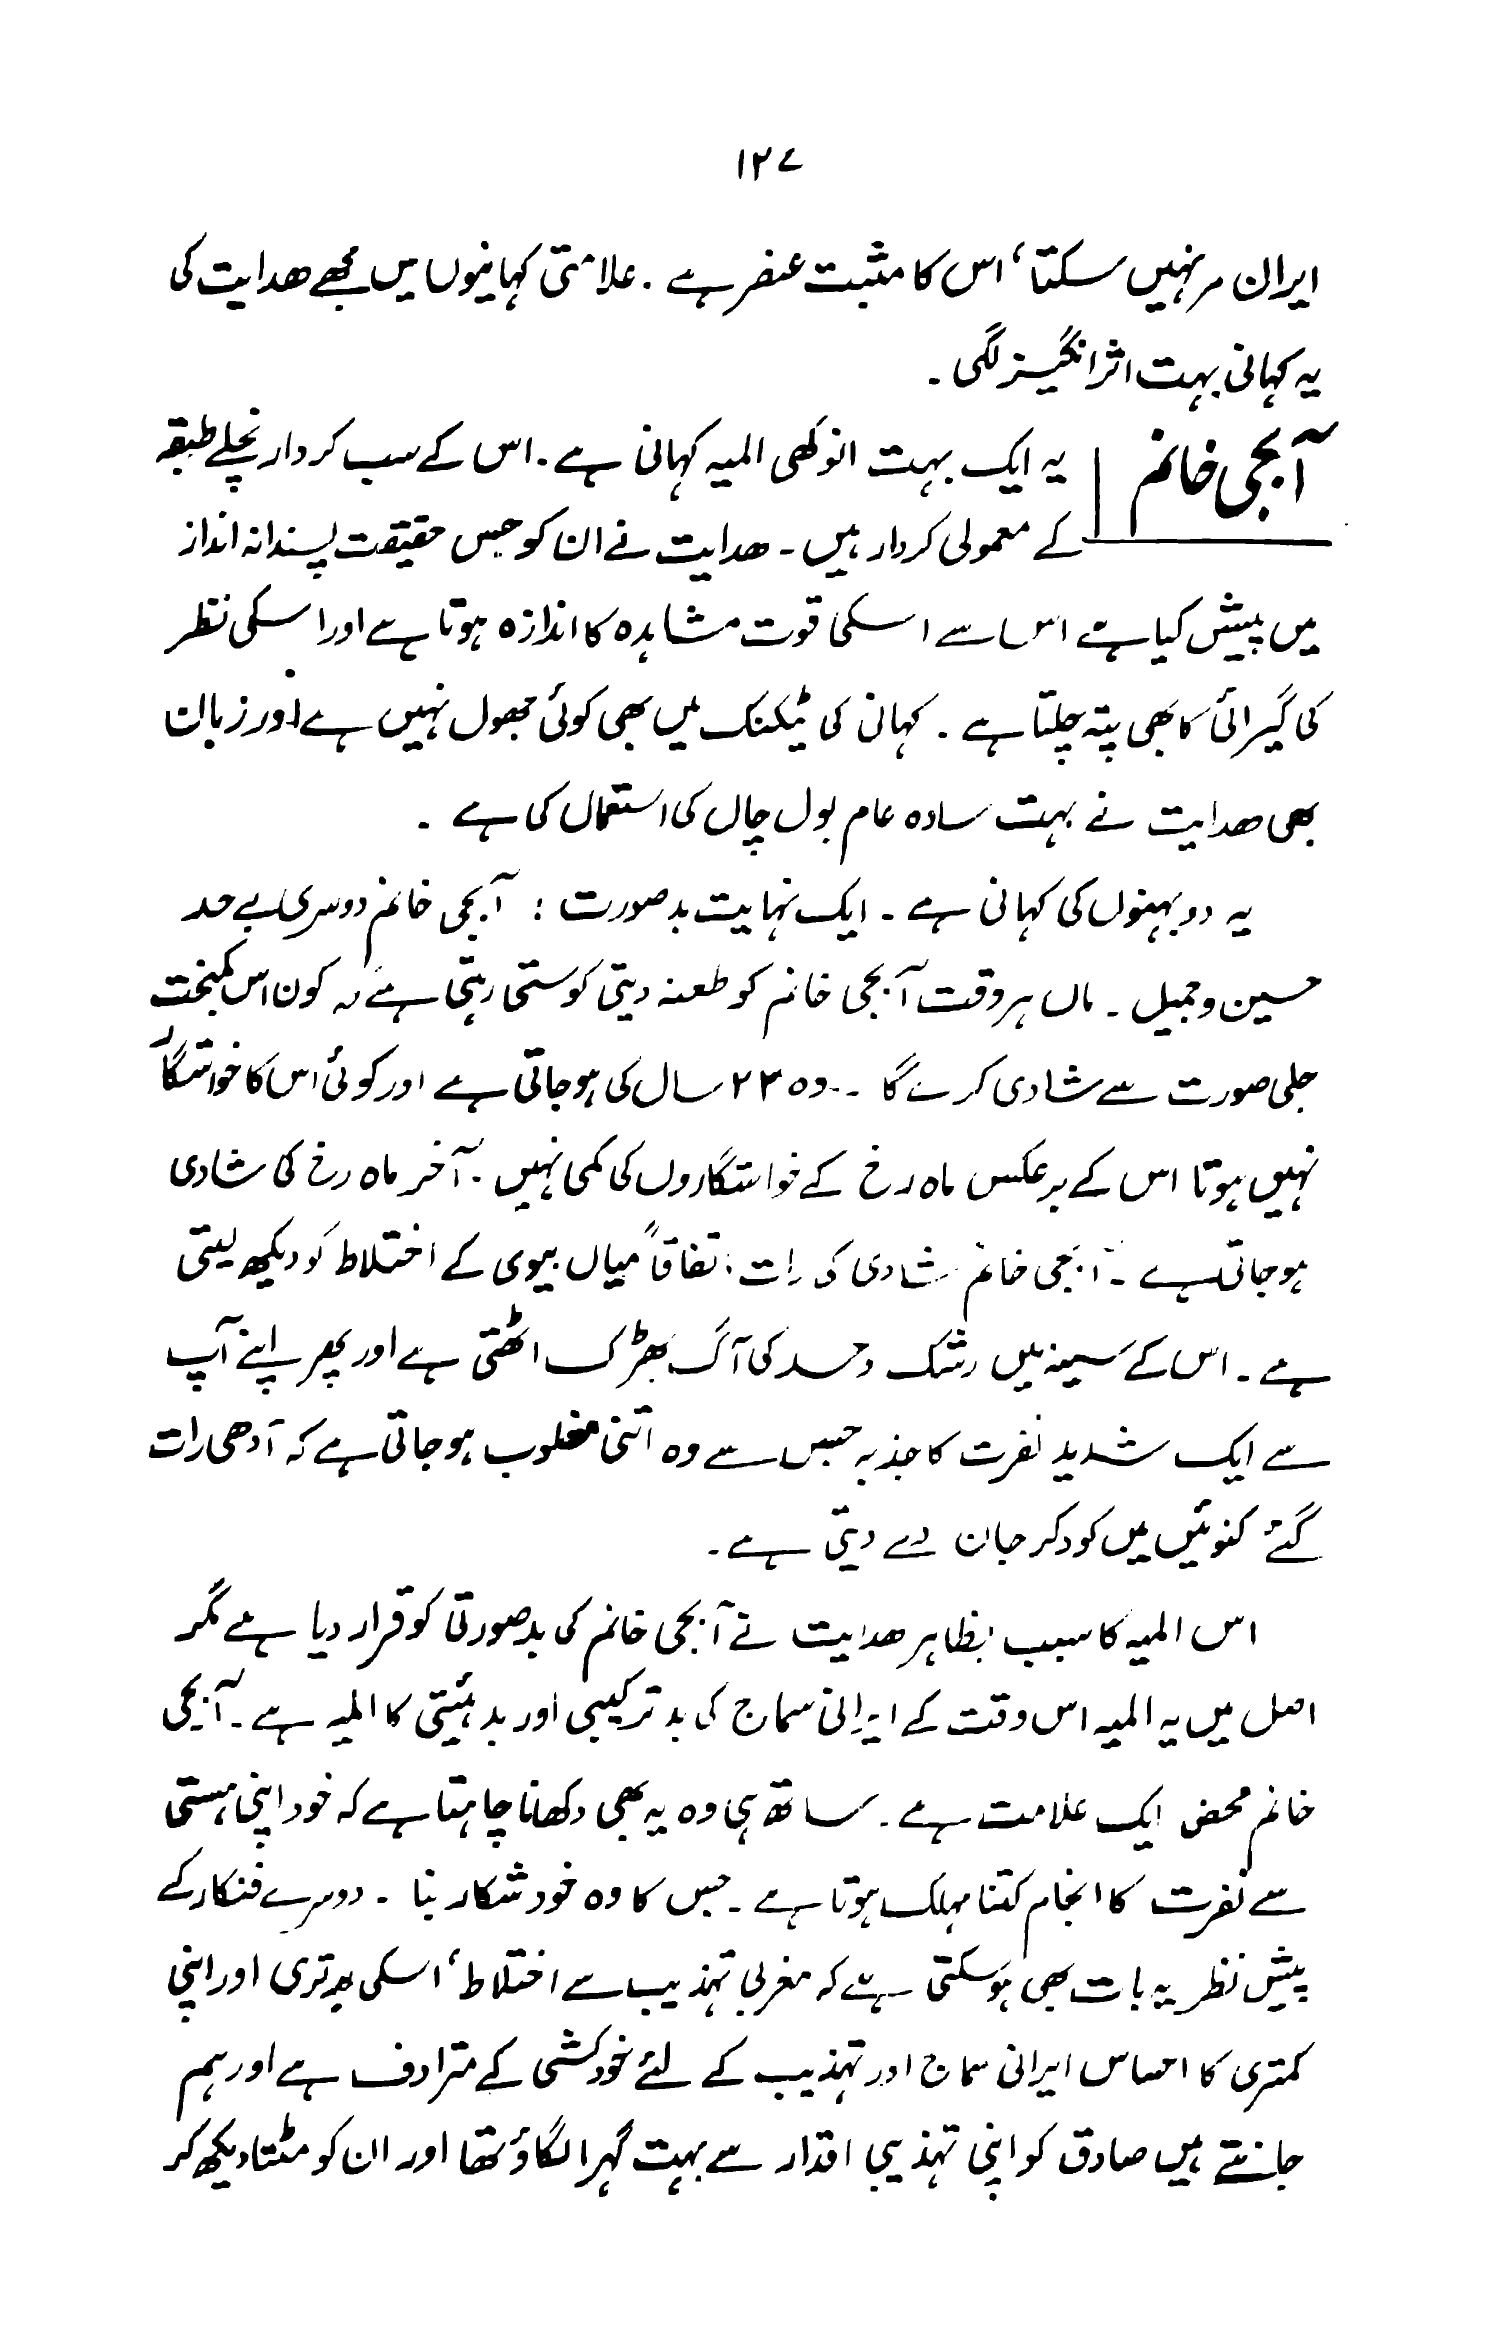 ۱۲۷
ایران مر نہیں سکتا، اس کا مثبت عنصر ہے ۔ علامتی کہانیوں میں مجھے ھدایت کی
یہ کہانی بہت اثر انگیز لگی ۔
آبجی خانم
یہ ایک بہت انوکھی المیہ کہانی ہے ۔ اس کے سب کردار نچلے طبقہ
کے معمولی کردار ہیں ۔ ھدایت نے ان کو جس حقیقت پسندانہ انداز
میں پیش کیا ہے اس سے اسکی قوت مشاہدہ کا اندازہ ہوتا ہے اور اسکی نظر
کی گیرائی کا بھی پتہ چلتا ہے ۔ کہانی کی ٹیکنک میں بھی کوئی جھول نہیں ہے اور زبان
بھی ھدایت نے بہت سادہ عام بول چال کی استعمال کی ہے ۔
یہ دو بہنوں کی کہانی ہے ۔ ایک نہایت بدصورت : آبجی خانم دوسری بے حد
حسین و جمیل ۔ ماں ہر وقت آبجی خانم کو طعنہ دیتی کوستی رہتی ہے کہ کون اس کمبخت
جلی صورت سے شادی کرے گا ۔ وہ ۲۳ سال کی ہو جاتی ہے اور کوئی اس کا خواستگار
نہیں ہوتا اس کے برعکس ماہ رخ کے خواستگاروں کی کمی نہیں ۔ آخر ماہ رخ کی شادی
ہو جاتی ہے ۔ آبجی خانم شادی کی رات اتفاقاً میاں بیوی کے اختلاط کو دیکھ لیتی
ہے ۔ اس کے سینہ میں رشک و حسد کی آگ بھڑک اٹھتی ہے اور پھر اپنے آپ
سے ایک شدید نفرت کا جذبہ جس سے وہ اتنی مغلوب ہو جاتی ہے کہ آدھی رات
گئے کنوئیں میں کود کر جان دے دیتی ہے ۔
اس المیہ کا سبب بظاہر ھدایت نے آبجی خانم کی بدصورتی کو قرار دیا ہے مگر
اصل میں یہ المیہ اس وقت کے ایرانی سماج کی بد ترکیبی اور بد ہئیتی کا المیہ ہے ۔ آبجی
خانم محض ایک علامت ہے ۔ ساتھ ہی وہ یہ بھی دکھانا چاہتا ہے کہ خود اپنی ہستی
سے نفرت کا انجام کتنا مہلک ہوتا ہے ۔ جس کا وہ خود شکار بنا ۔ دوسرے فنکار کے
پیش نظر یہ بات بھی ہو سکتی ہے کہ مغربی تہذیب سے اختلاط، اسکی برتری اور اپنی
کمتری کا احساس ایرانی سماج اور تہذیب کے لئے خودکشی کے مترادف ہے اور ہم
جانتے ہیں صادق کو اپنی تہذیبی اقدار سے بہت گہرا لگاؤ تھا اور ان کو مٹتا دیکھ کر